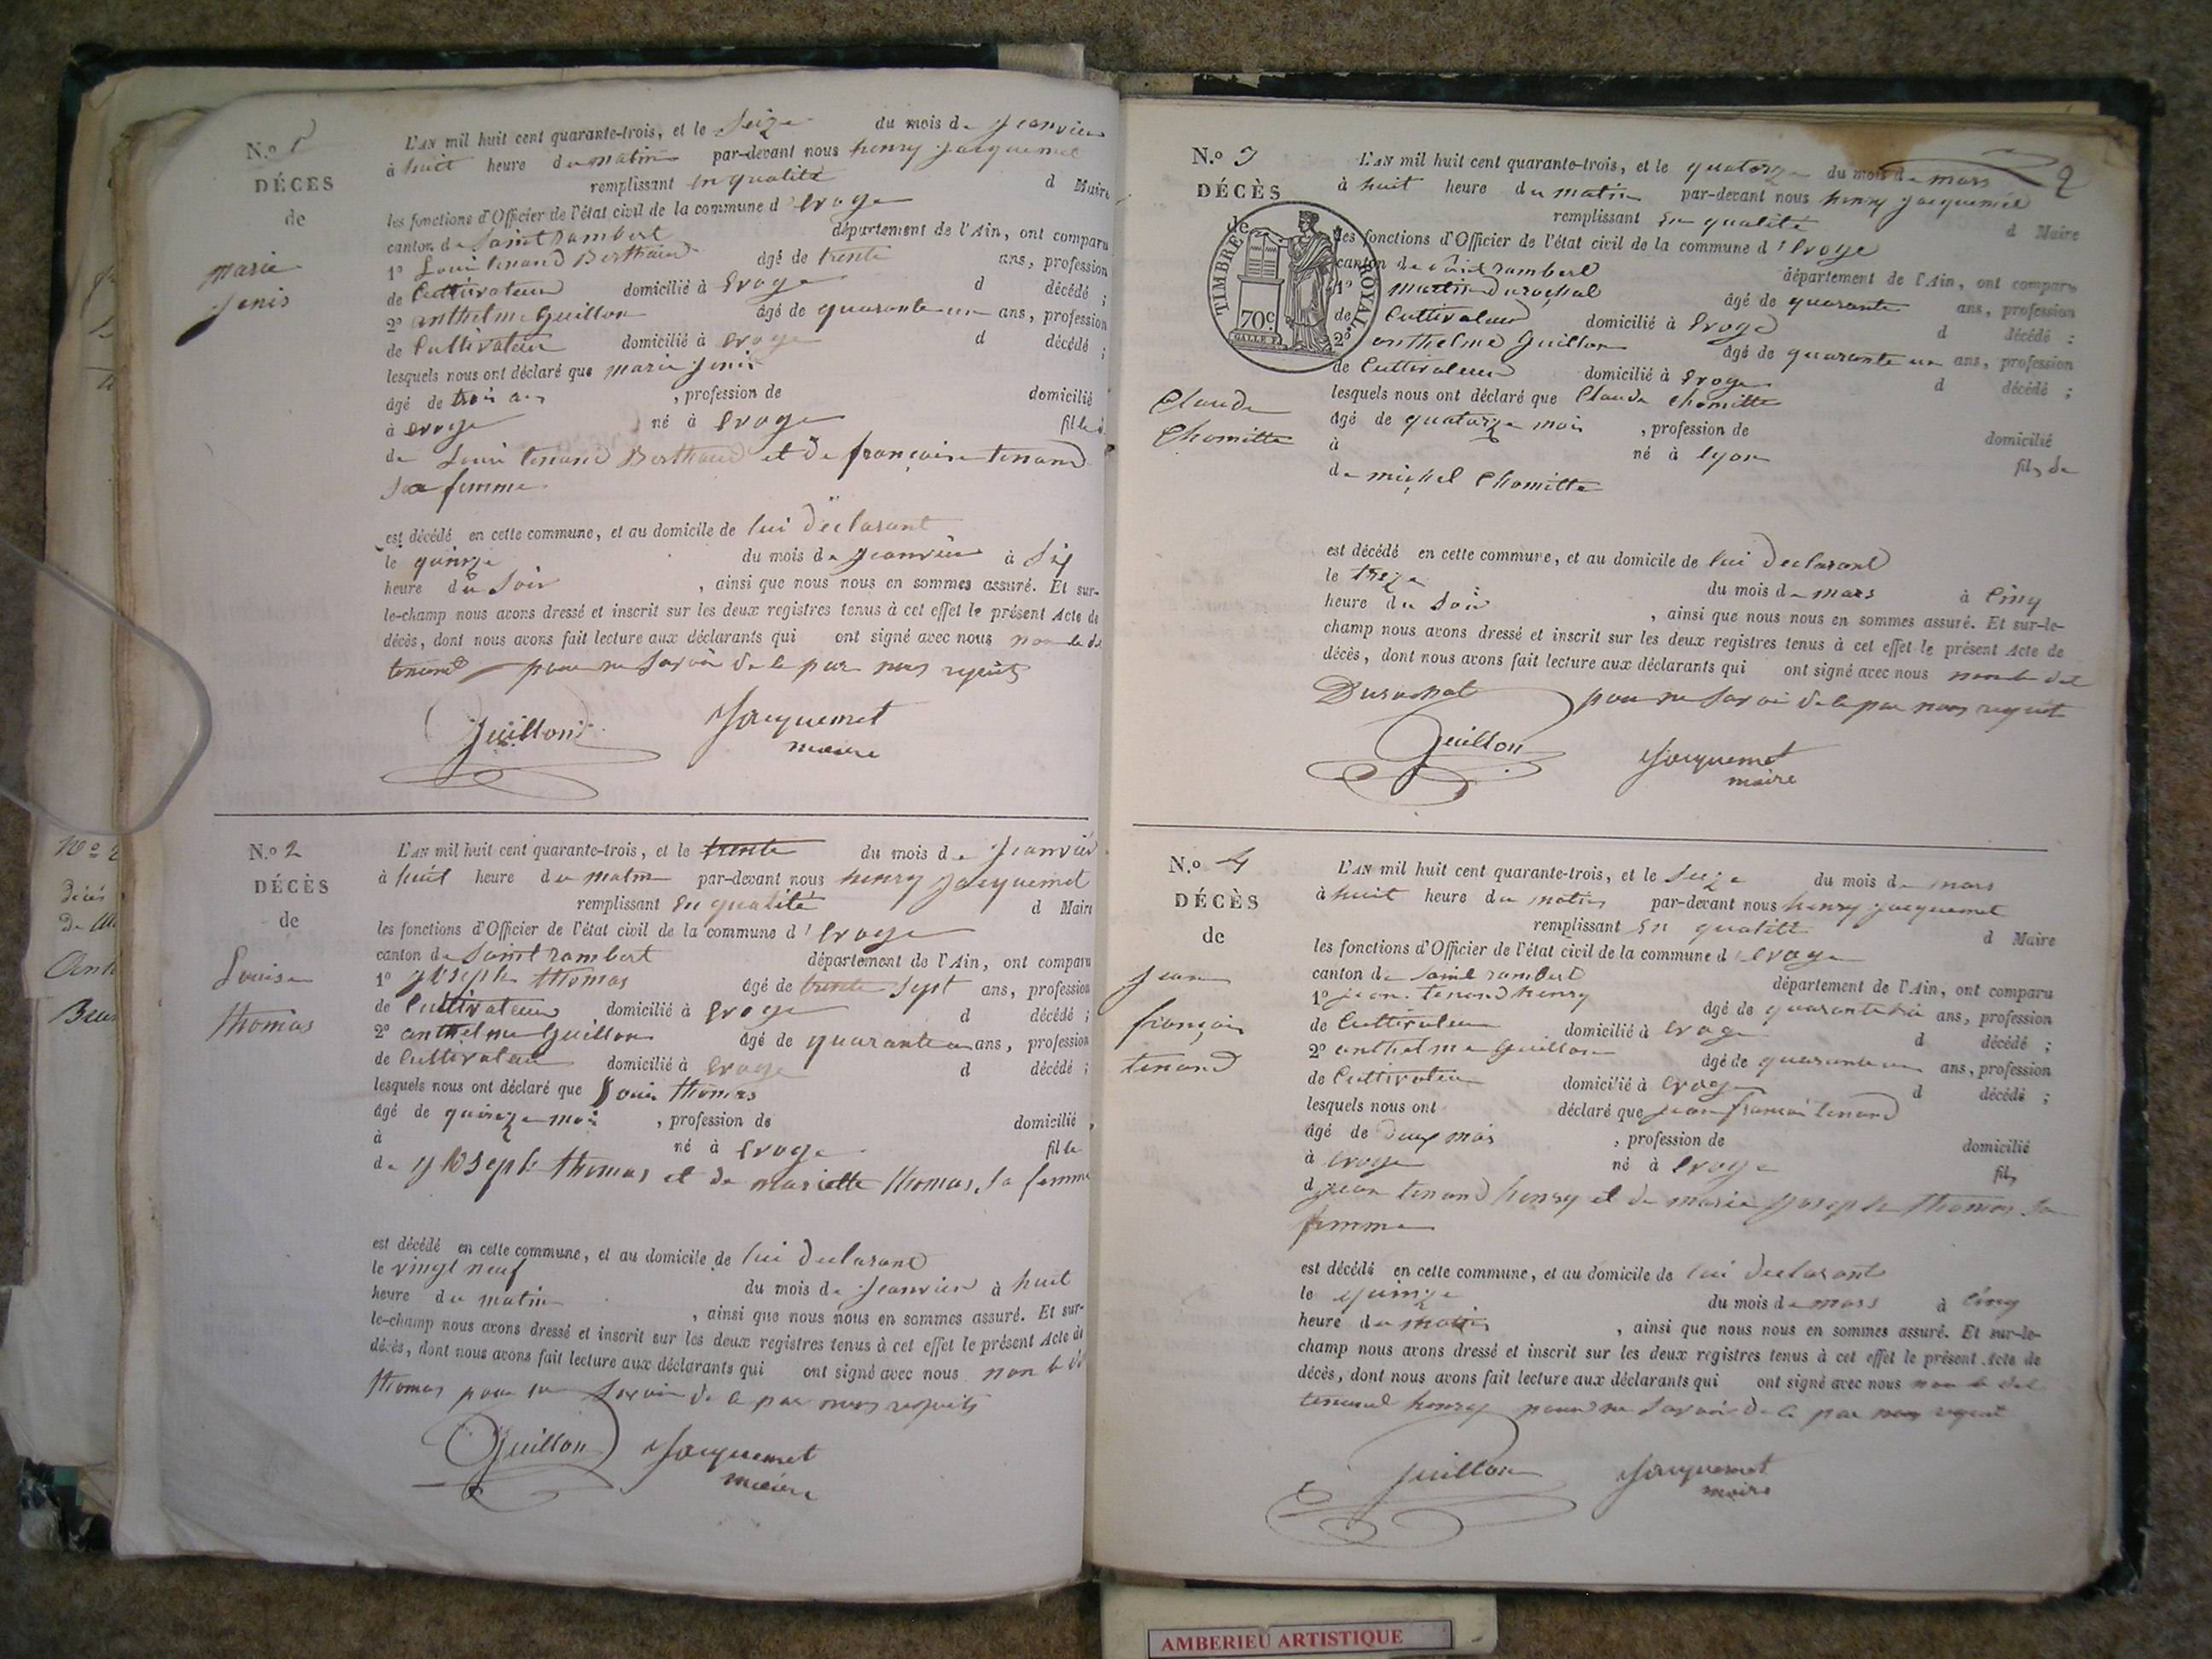 N.o 1
DÉCES
de
marie
jenis
L'AN mil huit cent quarante-trois, et le Seize du mois de jeanvier
à huit heure du matin par-devant nous henry jacquemet
remplissant en qualité d Maire
les fonctions d'Officier de l'état civil de la commune d'evoge
canton de Saint rambert département de l'Ain, ont comparu
1o Loui tenand Berthaud âgé de trente ans, profession
de Cultivateur domicilié à Evoge d décédé ;
2o anthelme Guillon âgé de quarante un ans, profession
de Cultivateur domicilié à evoge d décédé ;
lesquels nous ont déclaré que marie jenis
âgé de trois ans , profession de domicilié
à evoge né à Evoge fille
de Louis tenand Berthaud et de françoise tenand
Sa femme
est décédé en cette commune, et au domicile de lui déclarant
le quinze du mois de jeanvier à Six
heure du Soir , ainsi que nous nous en sommes assuré. Et sur-
le-champ nous avons dressé et inscrit sur les deux registres tenus à cet effet le présent Acte de
décès, dont nous avons fait lecture aux déclarants qui ont signé avec nous non le dt
tenand pour ne Savoir de ce par nous requis
Guillon Jacquemet
maire
N.o 2
DÉCÈS
de
Louise
thomas
L'AN mil huit cent quarante-trois, et le trente du mois de jeanvier
à huit heure du matin par-devant nous henry jacquemet
remplissant En qualité d Maire
les fonctions d'Officier de l'état civil de la commune d'Evoge
canton de Saint rambert département de l'Ain, ont comparu
1o joseph thomas âgé de trente sept ans, profession
de Cultivateur domicilié à Evoge d décédé ;
2o anthelme Guillon âgé de quarante un ans, profession
de Cultivateur domicilié à Evoge d décédé ;
lesquels nous ont déclaré que Louise thomas
âgé de quinze mois , profession de domicilié ,
à né à Evoge fille
de joseph thomas et de mariette thomas, sa femme
est décédé en cette commune, et au domicile de lui declarant
le vingt neuf du mois de jeanvier à huit
heure du matin , ainsi que nous nous en sommes assuré. Et sur-
le-champ nous avons dressé et inscrit sur les deux registres tenus à cet effet le présent Acte de
décès, dont nous avons fait lecture aux déclarants qui ont signé avec nous non le dt
thomas pour ne Savoir de ce par nous requis
Guillon Jacquemet
maire
2
N.o 3
DÉCÈS
de
TIMBRE ROYAL
70c.
Claude
Chomitte
L'AN mil huit cent quarante-trois, et le quatorze du mois de mars
à huit heure du matin par-devant nous henry jacquemet
remplissant En qualité d Maire
les fonctions d'Officier de l'état civil de la commune d'Evoge
canton de Saint rambert département de l'Ain, ont comparu
1o martin durochat âgé de quarante ans, profession
de Cultivateur domicilié à Evoge d décédé ;
2o anthelme Guillon âgé de quarante un ans, profession
de Cultivateur domicilié à Evoge d décédé ;
lesquels nous ont déclaré que Claude Chomitte
âgé de quatorze mois , profession de domicilié
à né à lyon fils de
de michel Chomitte
est décédé en cette commune, et au domicile de lui declarant
le treize du mois de mars à Cinq
heure du Soir , ainsi que nous nous en sommes assuré. Et sur-le-
champ nous avons dressé et inscrit sur les deux registres tenus à cet effet le présent Acte de
décès, dont nous avons fait lecture aux déclarants qui ont signé avec nous non le dt
Durochat pour ne Savoir de ce par nous requit
Guillon Jacquemet
maire
N.o 4
DÉCÈS
de
jean
françois
tenand
L'AN mil huit cent quarante-trois, et le Seize du mois de mars
à huit heure du matin par-devant nous henry jacquemet
remplissant En qualité d Maire
les fonctions d'Officier de l'état civil de la commune d'evoge
canton de Saint rambert département de l'Ain, ont comparu
1o jean tenand henry âgé de quarante ans, profession
de Cultivateur domicilié à Evoge d décédé ;
2o anthelme Guillon âgé de quarante un ans, profession
de Cultivateur domicilié à Evoge d décédé ;
lesquels nous ont déclaré que jean françois tenand
âgé de deux mois , profession de domicilié
à evoge né à Evoge fils
d jean tenand henry et de marie joseph thomas Sa
femme
est décédé en cette commune, et au domicile de lui declarant
le quinze du mois de mars à Cinq
heure du matin , ainsi que nous nous en sommes assuré. Et sur-le-
champ nous avons dressé et inscrit sur les deux registres tenus à cet effet le présent Acte de
décès, dont nous avons fait lecture aux déclarants qui ont signé avec nous non le dt
tenand henry pour ne Savoir de ce par nous requit
Guillon Jacquemet
maire
AMBERIEU ARTISTIQUE